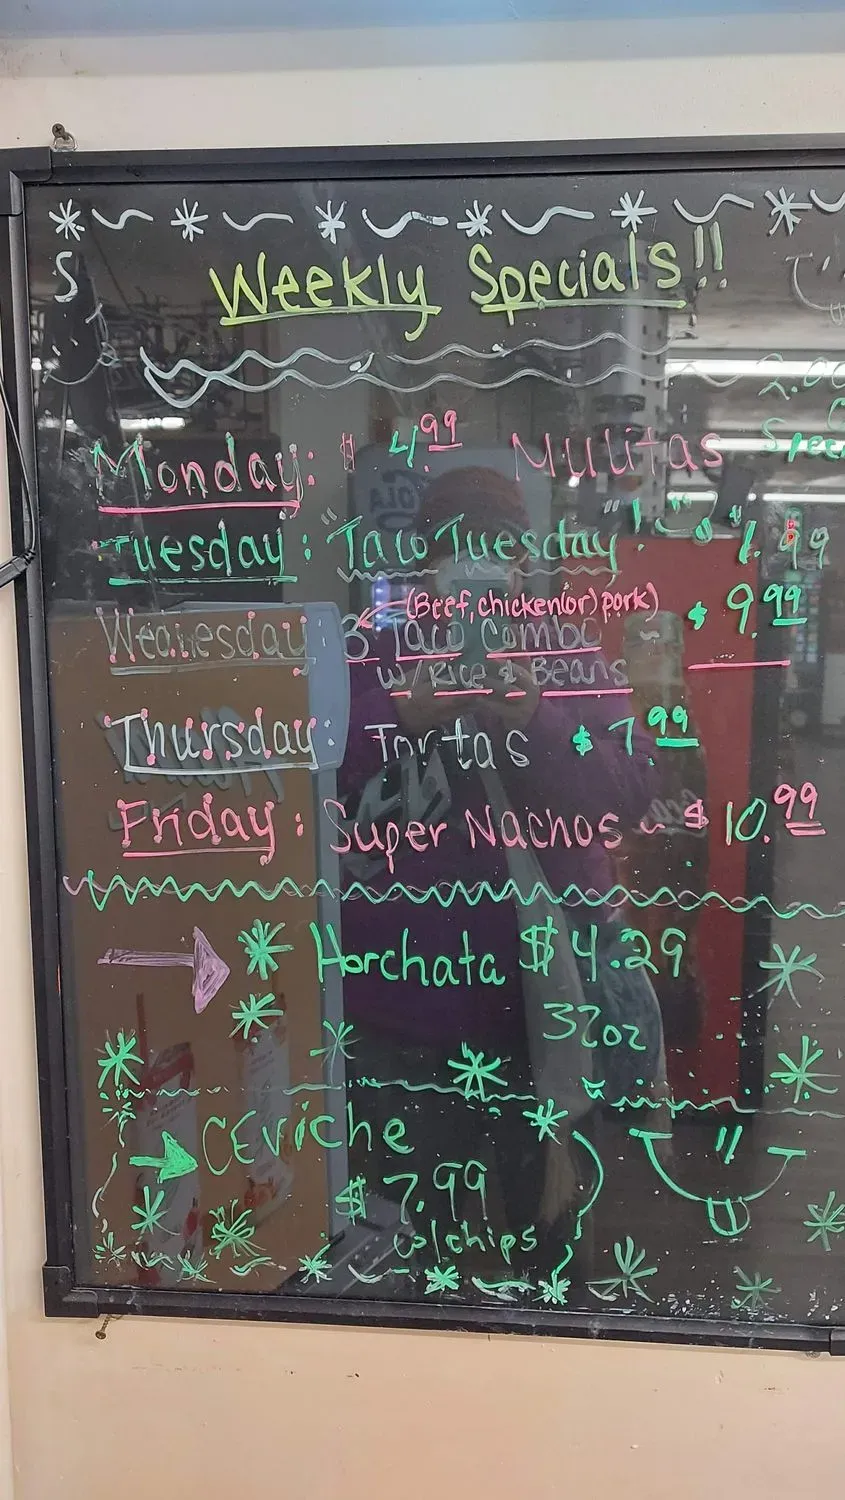 Weekly Specials!!
Monday: $ 4.99 Mulitas
Tuesday: "Taco Tuesday"! $1.99
(Beef, chicken(or)pork) $ 9.99
Wednesday: 3 Taco Combo
w/Rice & Beans
Thursday: Tortas $ 7.99
Friday: Super Nachos ~ $ 10.99
Horchata $4.29
32oz
CEviche
$7.99
w/chips